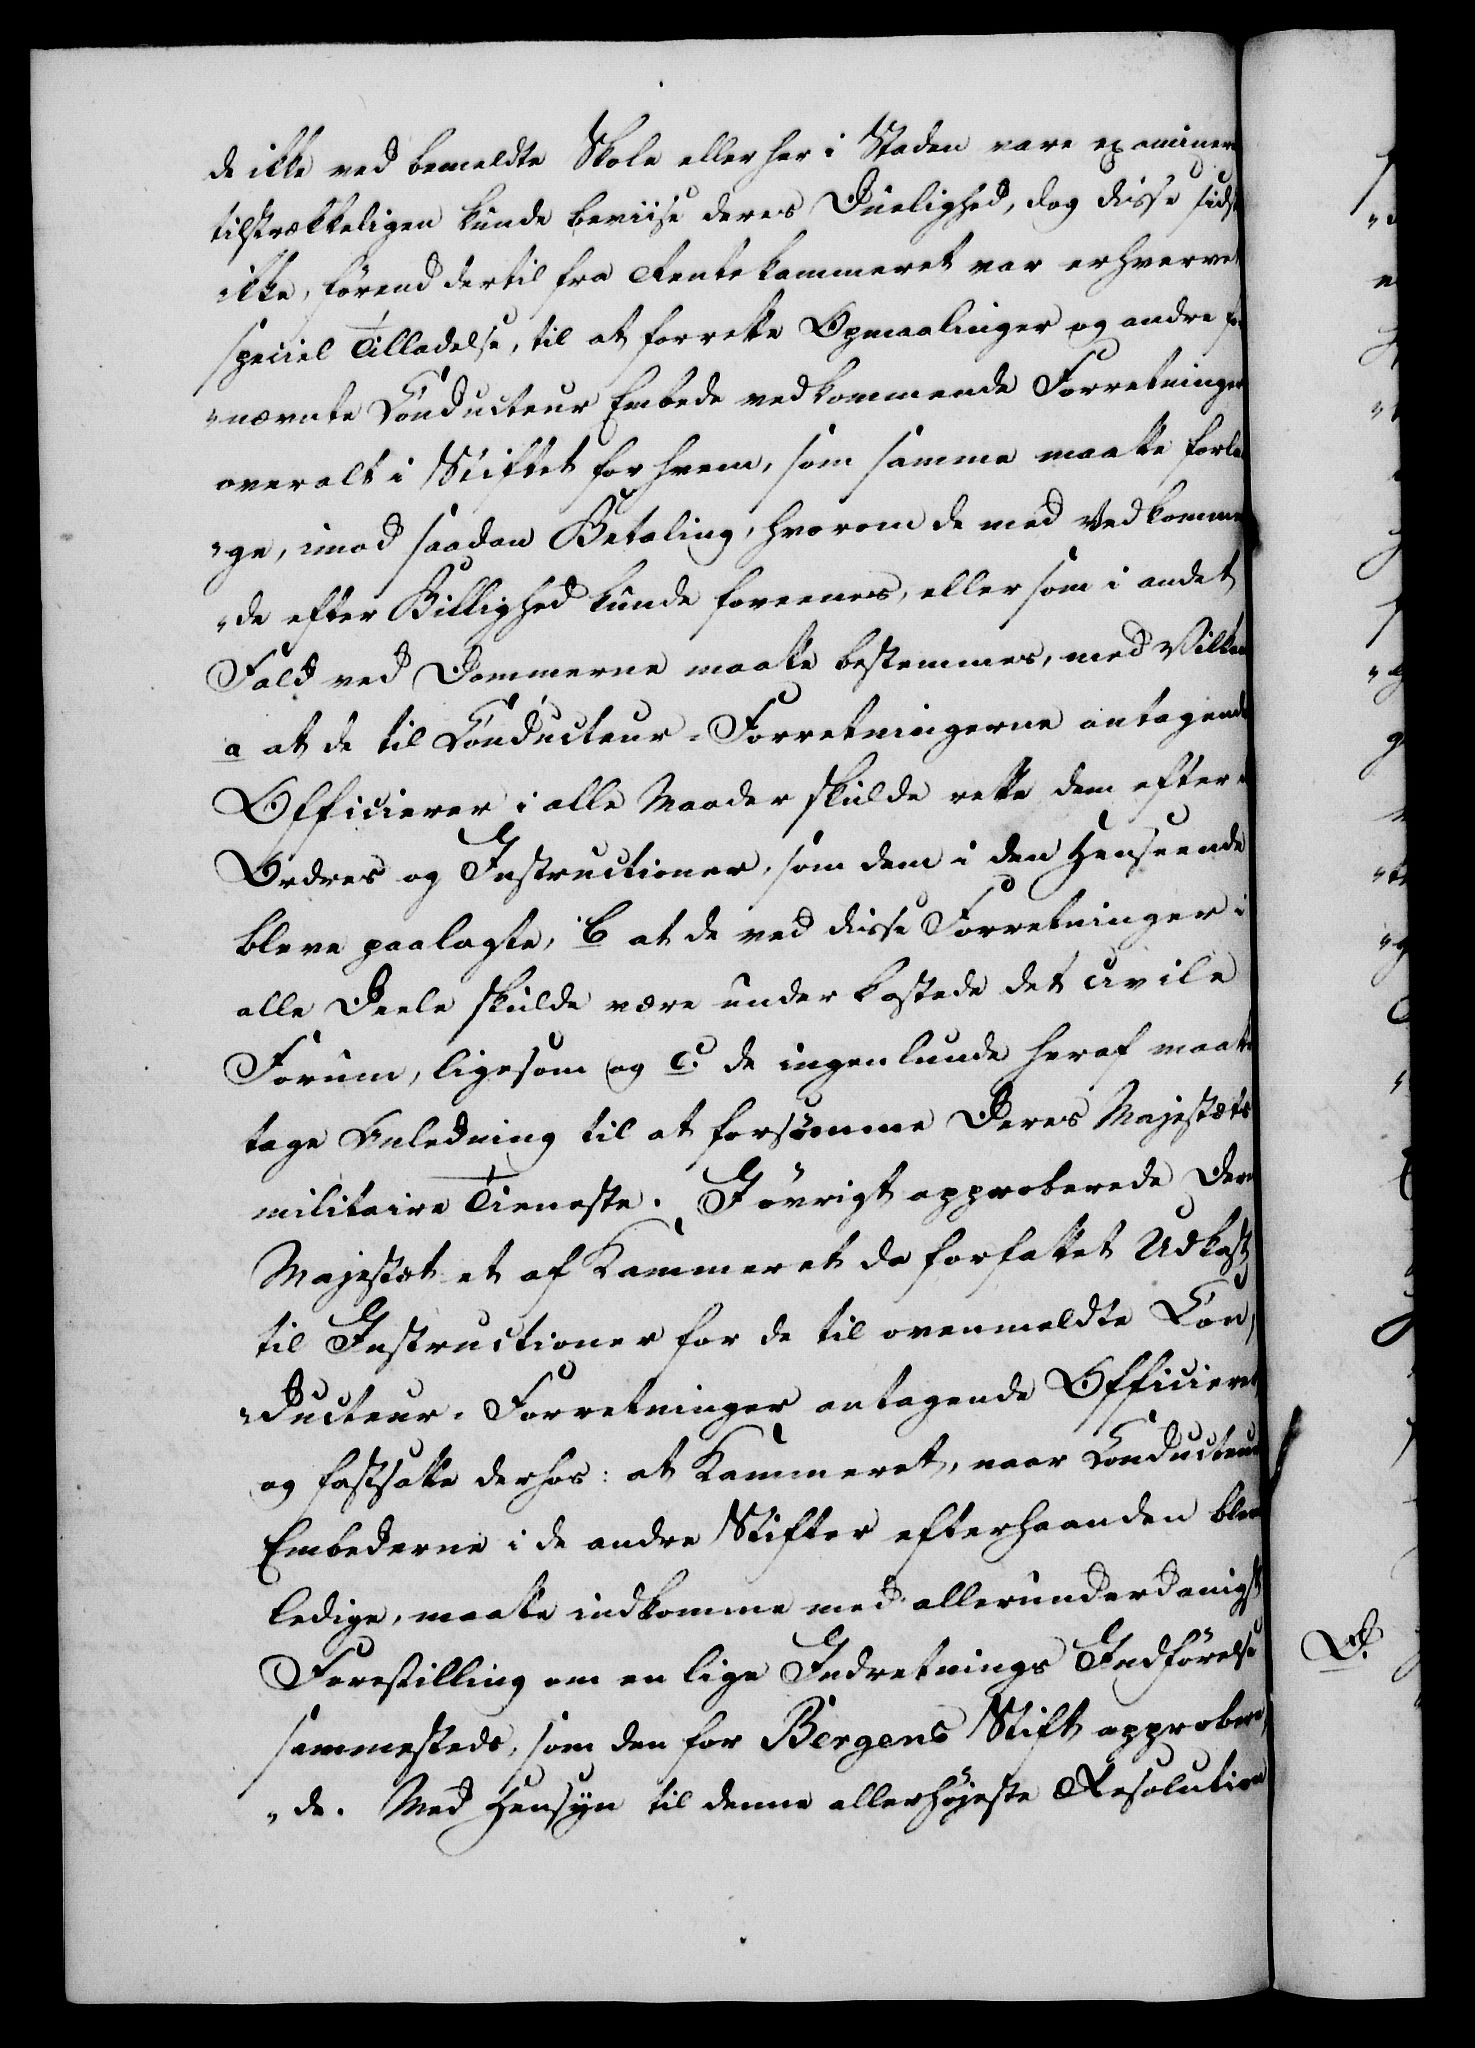 de ikke ved bemeldte Skole eller her i Staden vare examinere
tilstrækkeligen kunde beviise deres Duelighed, dog disse sidste
ikke, förend dertil fra Rentekammeret var erhvervet
speciel Tilladelse, til at forrette Opmaalinger og andre
"nævnte Conducteur Embede vedkommende Forretninger
overalt i Stiftet for hvem, som samme maatte forla
"ge, imod saadan Betaling, hvorom de med Vedkommen
"de efter Billighed kunde foreenes, eller som i andet
Fald ved Dommerne maatte bestemmes, med Vilkaar
a at de til Conducteur-Forretningerne antagende
Officierer i alle Maader skulde rette dem efter
Ordres og Instructioner, som dem i den Henseende
bleve paalagte, b at de ved disse Forretninger i
alle Deele skulde være underkastede det civile
Forum, ligesom og c. de ingenlunde heraf maatte
tage Anledning til at forsömme Deres Majestæts
militaire Tieneste. I övrigt approberede Deres
Majestæt et af Kammeret da forfattet Udkast
til Instructioner for de til ovenmeldte Con,
"ducteur-Forretninger antagende Officierer
og fastsatte derhos: at Kammeret, naar Conducteur
Embederne i de andre Stifter efterhaanden bleve
ledige, maatte indkomme med allerunderdanigst
Forestilling om en lige Indretnings Indförelse
sammesteds, som den for Bergens Stift approbere,
"de. Med Hensyn til denne allerhöjeste Resolution
D.